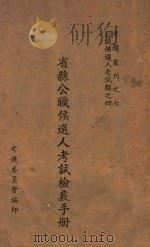 考選叢刊之七
公職候選人考試類之四
省縣公職候選人考試檢覈手册
考選委員會編印